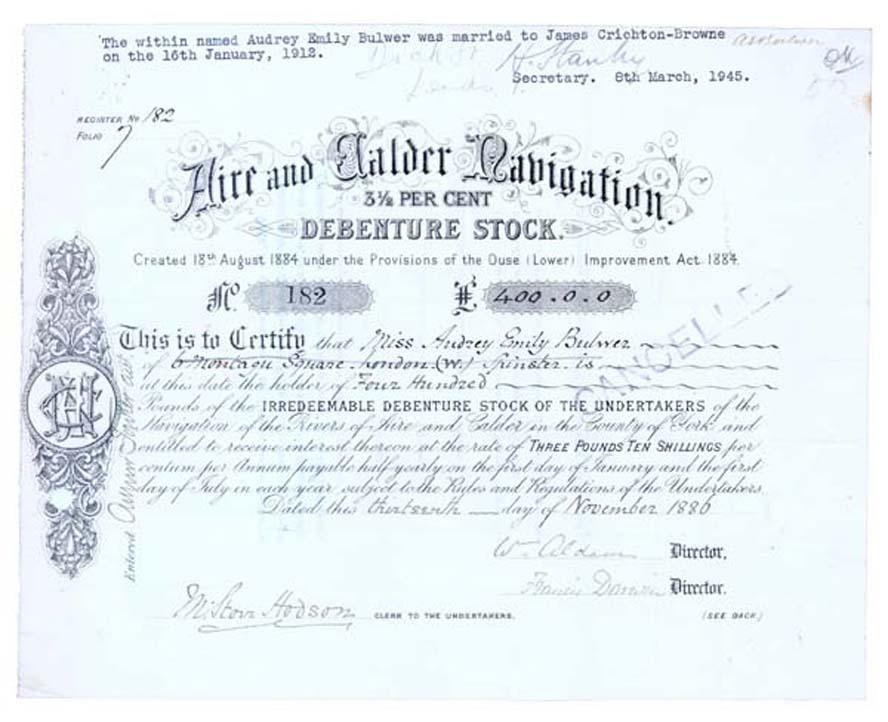 The within named Audrey Emily Bulwer was married to James Crichton-Browne
on the 16th January, 1912.
H. Stanley
Secretary. 8th March, 1945.
REGISTER No 182
FOLIO 7
Aire and Calder Navigation.
3½ PER CENT
DEBENTURE STOCK.
Created 18th August 1884 under the Provisions of the Ouse (Lower) Improvement Act. 1884.
No. 182 £ 400.0.0
CANCELLED
This is to Certify that Miss Audrey Emily Bulwer
of 6 Montagu Square London (W.) Spinster is
at this date the holder of Four Hundred
Pounds of the IRREDEEMABLE DEBENTURE STOCK OF THE UNDERTAKERS of the
Navigation of the Rivers of Aire and Calder in the County of York and
entitled to receive interest thereon at the rate of THREE POUNDS TEN SHILLINGS per
centum per Annum payable half yearly on the first day of January and the first
day of July in each year subject to the Rules and Regulations of the Undertakers.
Dated this thirteenth day of November 1886
Entered
Wm Aldam Director.
Francis Darwin Director.
M. Storr Hodson CLERK TO THE UNDERTAKERS. (SEE BACK.)